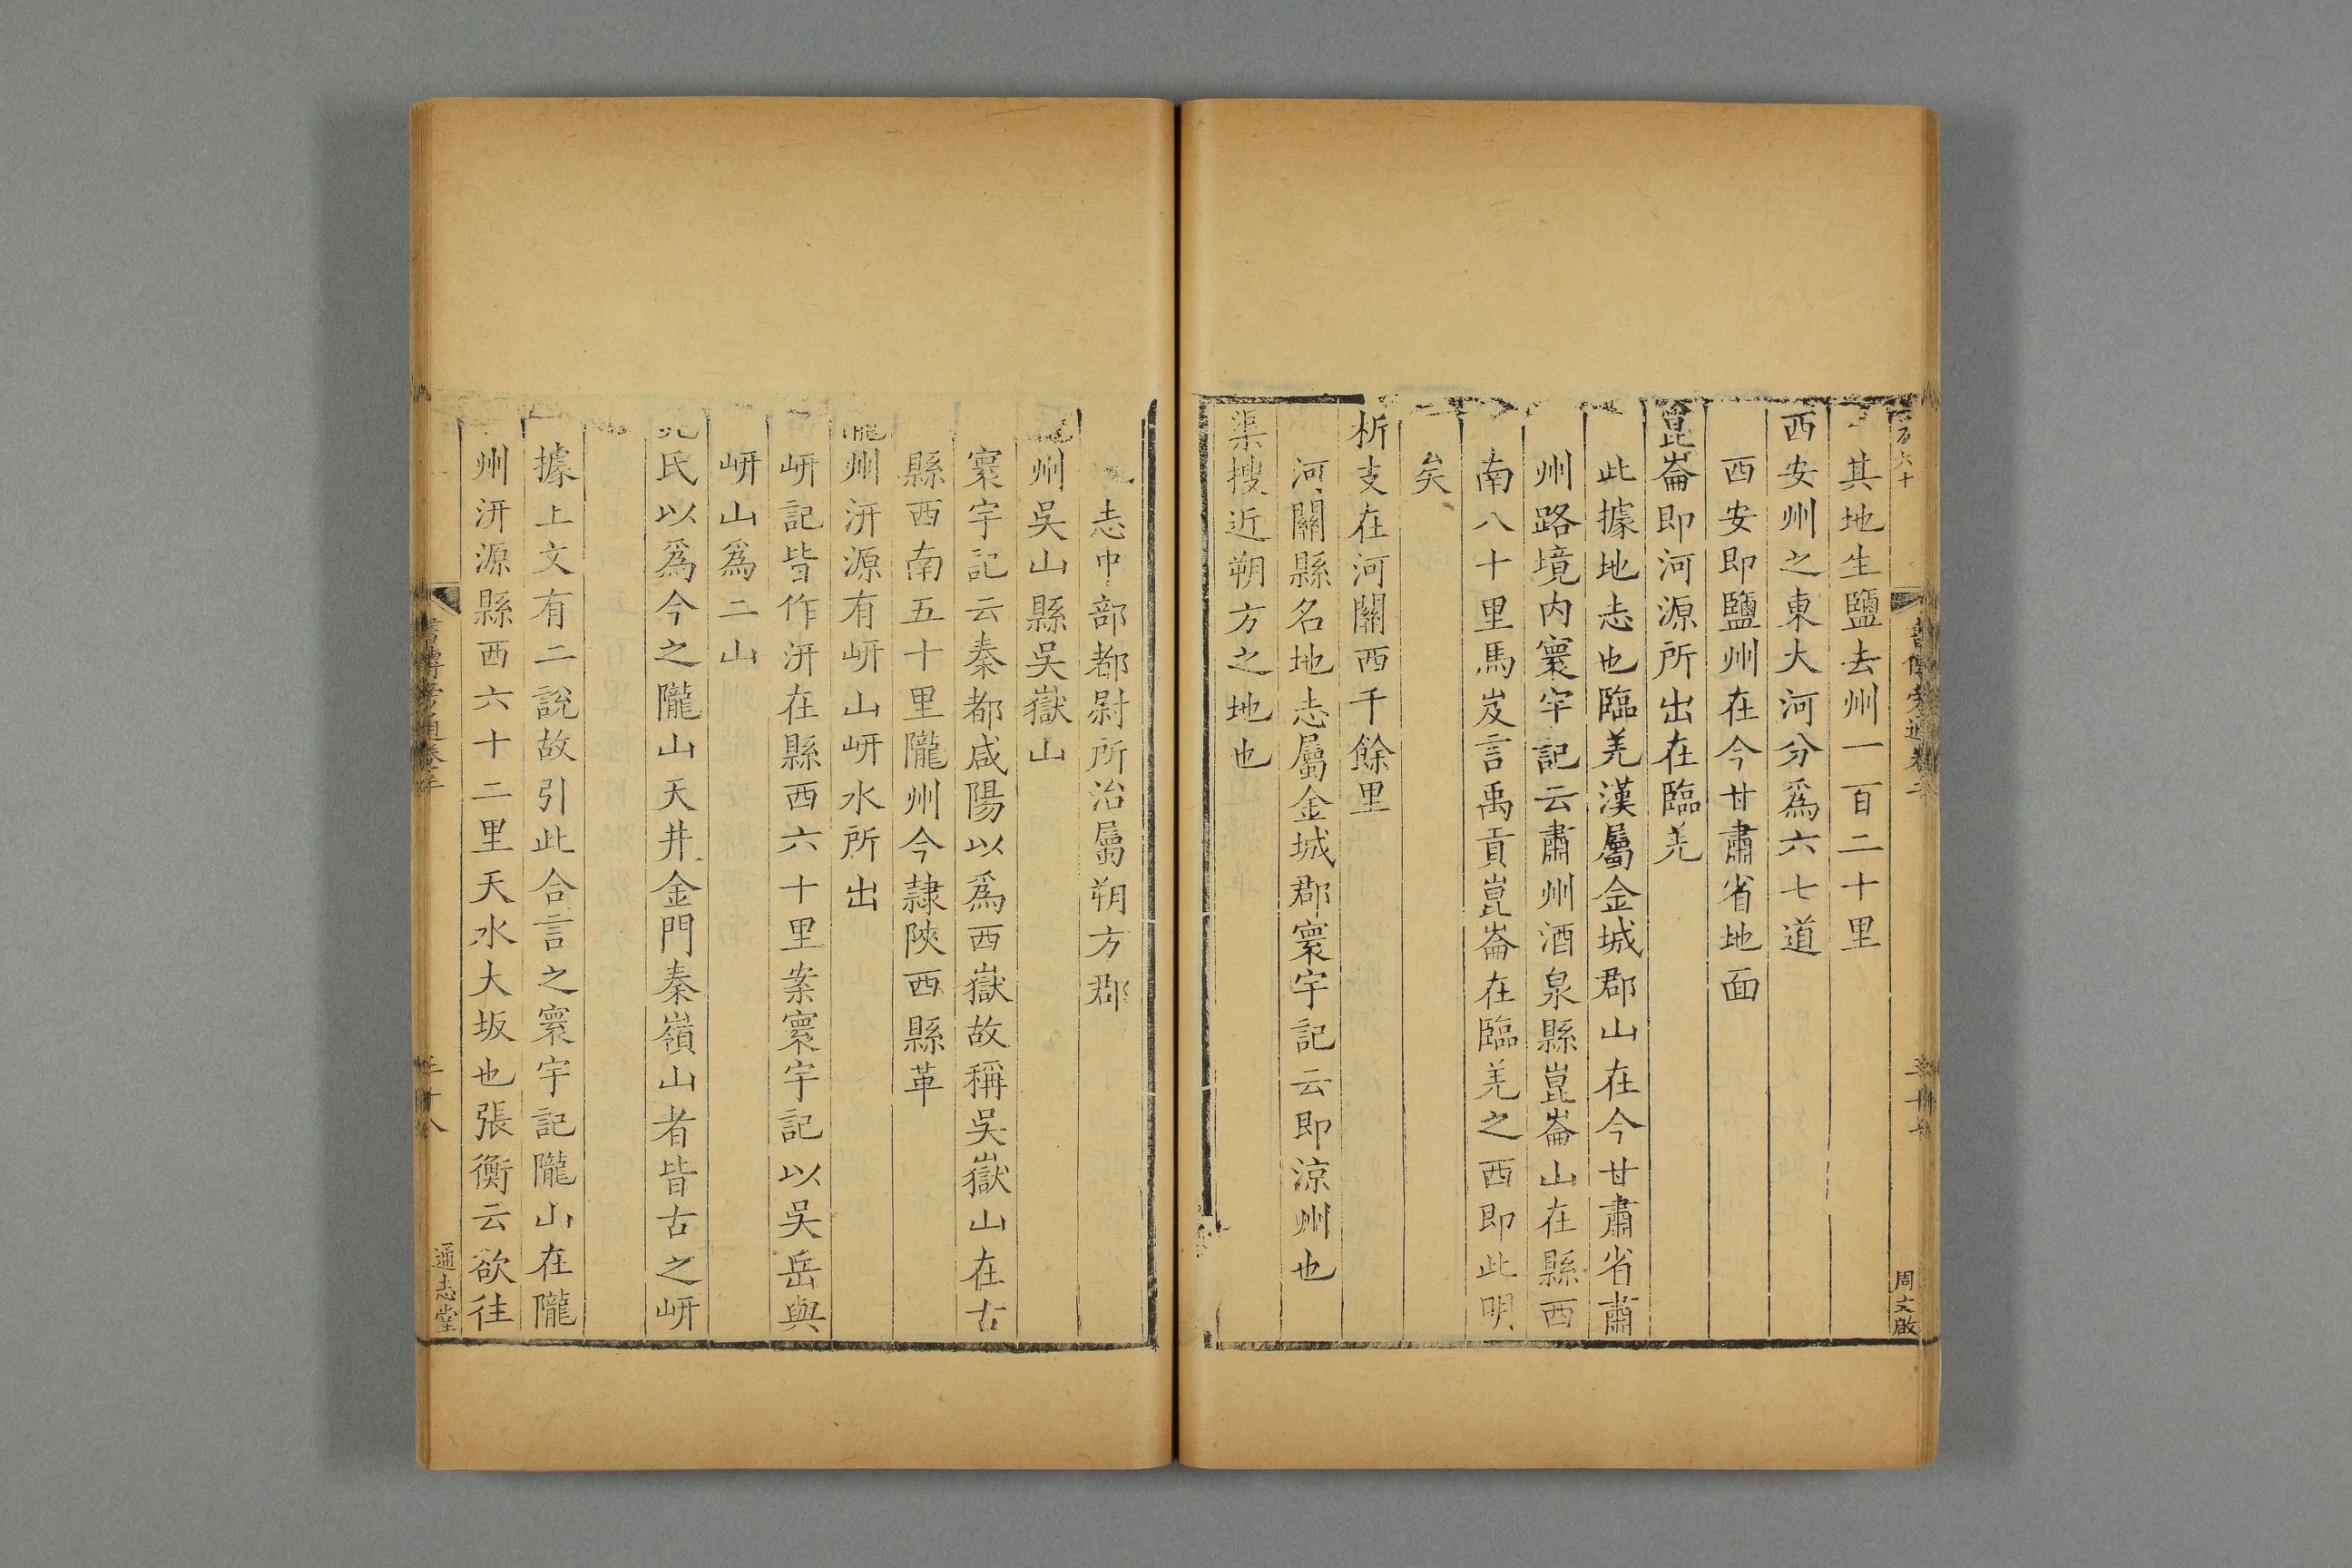 其地生鹽去州一百二十里
西安州之東大河分爲六七道
西安即鹽州在今甘肅省地面
崑崙即河源所出在臨羌
此據地志也臨羌漢屬金城郡山在今甘肅省肅
州路境内寰宇記云肅州酒泉縣崑崙山在縣西
南八十里馬岌言禹貢崑崙在臨羌之西即此明
矣
析支在河關西千餘里
河關縣名地志屬金城郡寰宇記云即涼州也
渠搜近朔方之地也
周文啟
志中部都尉所治屬朔方郡
州吳山縣吳嶽山
寰宇記云秦都咸陽以爲西嶽故稱吳嶽山在古
縣西南五十里隴州今隸陝西縣革
隴州汧源有岍山岍水所出
岍記皆作汧在縣西六十里案寰宇記以吳岳與
岍山爲二山
晁氏以爲今之隴山天井金門秦嶺山者皆古之岍
據上文有二說故引此合言之寰宇記隴山在隴
州汧源縣西六十二里天水大坂也張衡云欲往
書傳旁通卷二
二十八
通志堂